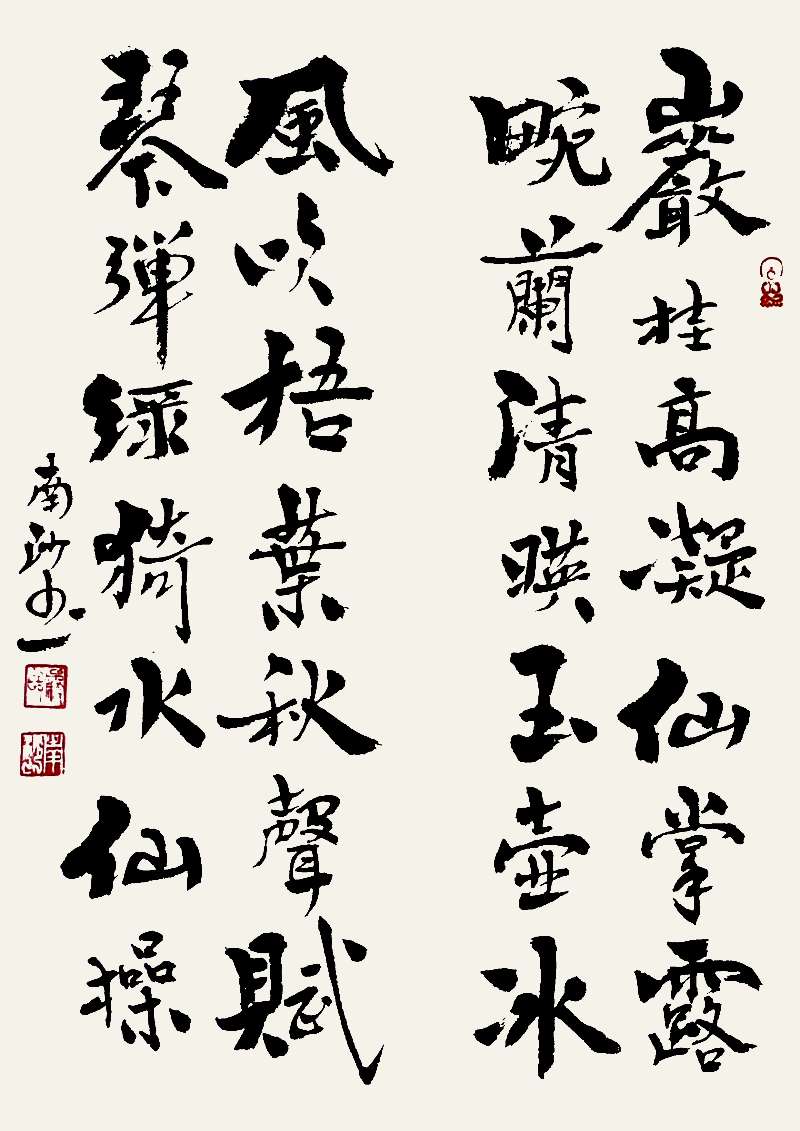 巖桂高凝仙掌露
畹蘭清暎玉壺冰
風吹梧葉秋聲賦
琴弹绿猗水仙操
南沙书